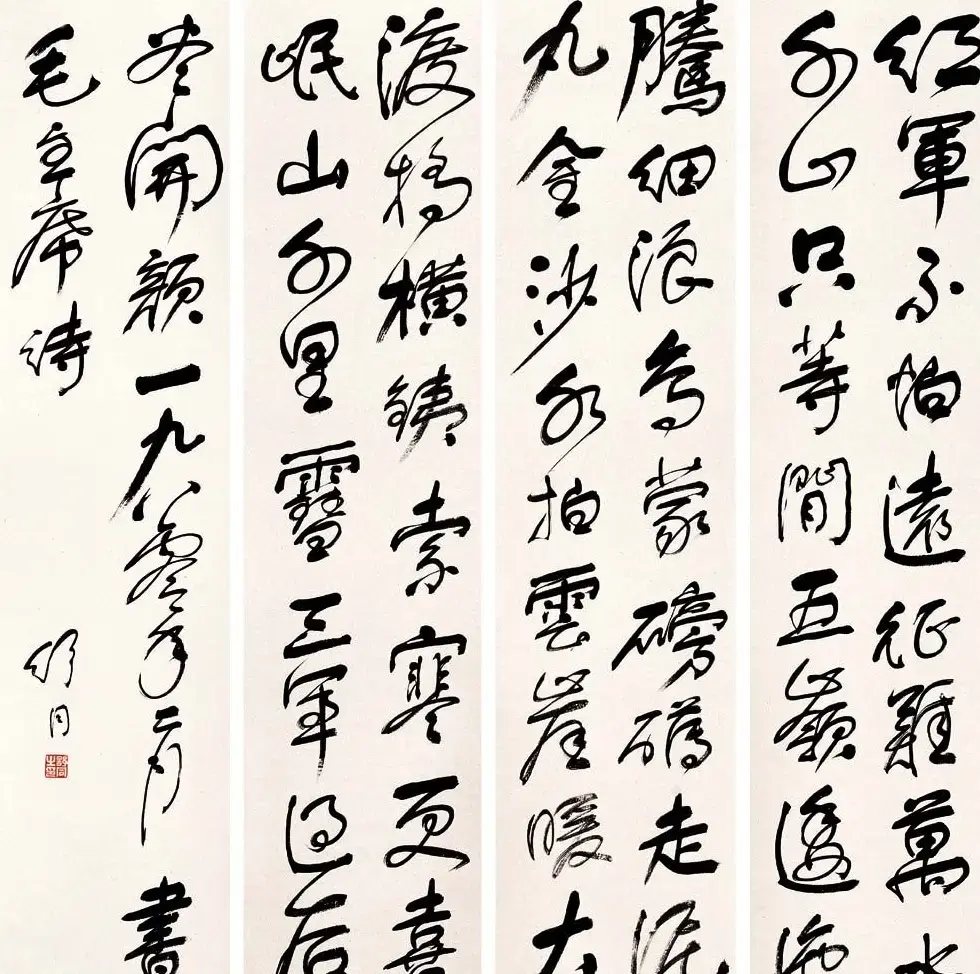 紅軍不怕遠征難萬水
千山只等閒五嶺逶迤
騰細浪烏蒙磅礴走泥
丸金沙水拍雲崖暖大
渡橋橫銕索寒更喜
岷山千里雪三軍過后
尽開顏一九八零年二月書
毛主席詩 舒同